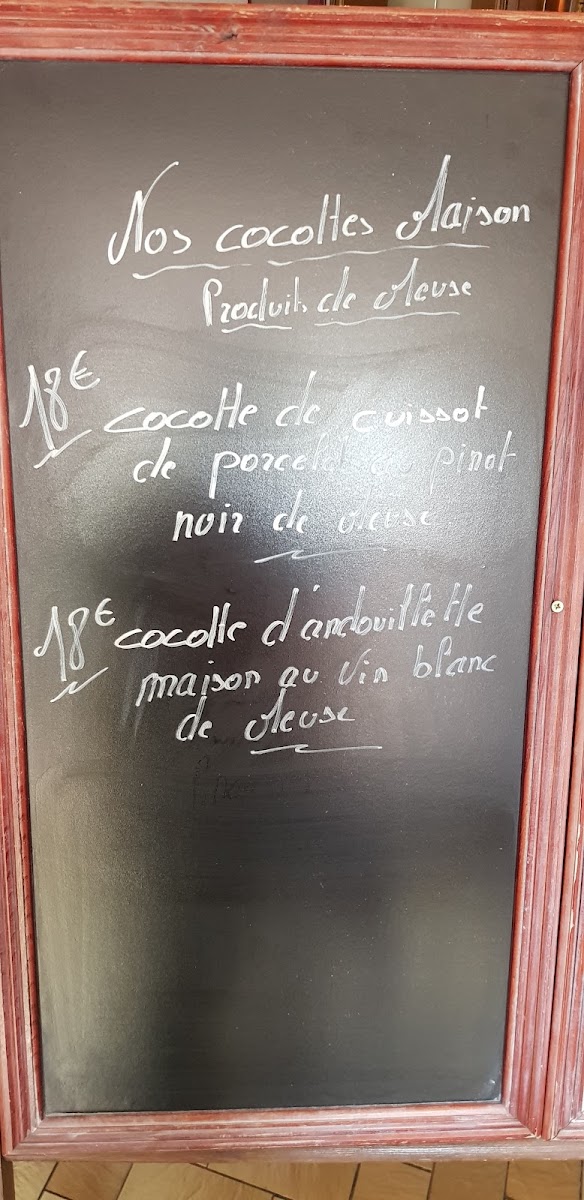 Nos cocottes Maison
Produits de Meuse
18€ cocotte de cuissot
de porcelet au pinot
noir de Meuse
18€ cocotte d'andouillette
maison au vin blanc
de Meuse